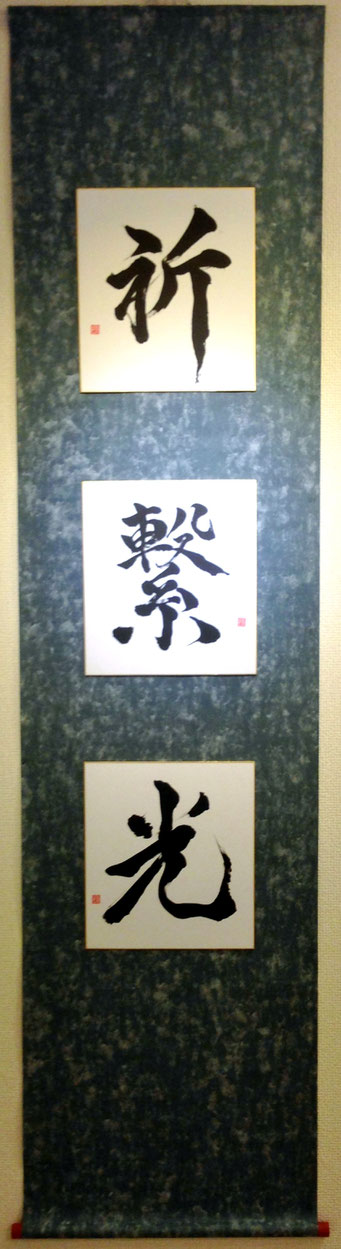 祈
繋
光